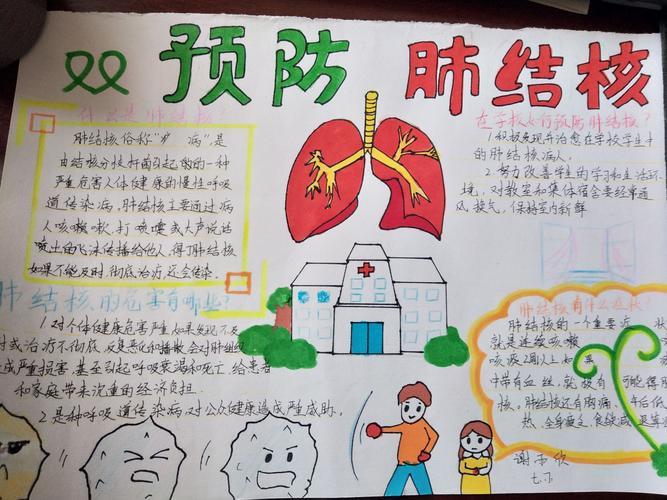 预防 肺结核
什么是肺结核?
肺结核俗称"疒 病",是
由结核分枝杆菌引起的的一种
严重危害人体健康的慢性呼吸
道传染病。肺结核主要通过病
人咳嗽嗽、打喷嚏或大声说话
喷出的飞沫传播给他人,得了肺结核
如果不能及时、彻底治疗还会传染。
在学校如何预防肺结核?
1.积极发现并治愈在学校学生中
的肺结核病人。
2.努力改善学生的学习和生活环
境,对教室和集体宿舍要经常通
风、换气,保持室内新鲜
肺结核的危害有哪些?
1.对个体健康危害严重如果发现不及
时或治疗不彻底,反复恶化和播散会对肺组织
造成严重损害,甚至引起呼吸衰竭和死亡,给患者
和家庭带来沉重的经济负担.
2.是种呼吸道传染病,对公众健康造成严重威胁.
肺结核有什么症状?
肺结核的一个重要症
就是连续咳嗽
咳痰2周以上如
中带有血丝,就极有 可能得
核。肺结核还有胸痛、午后低
热、全身疲乏、食欲减
谢
七